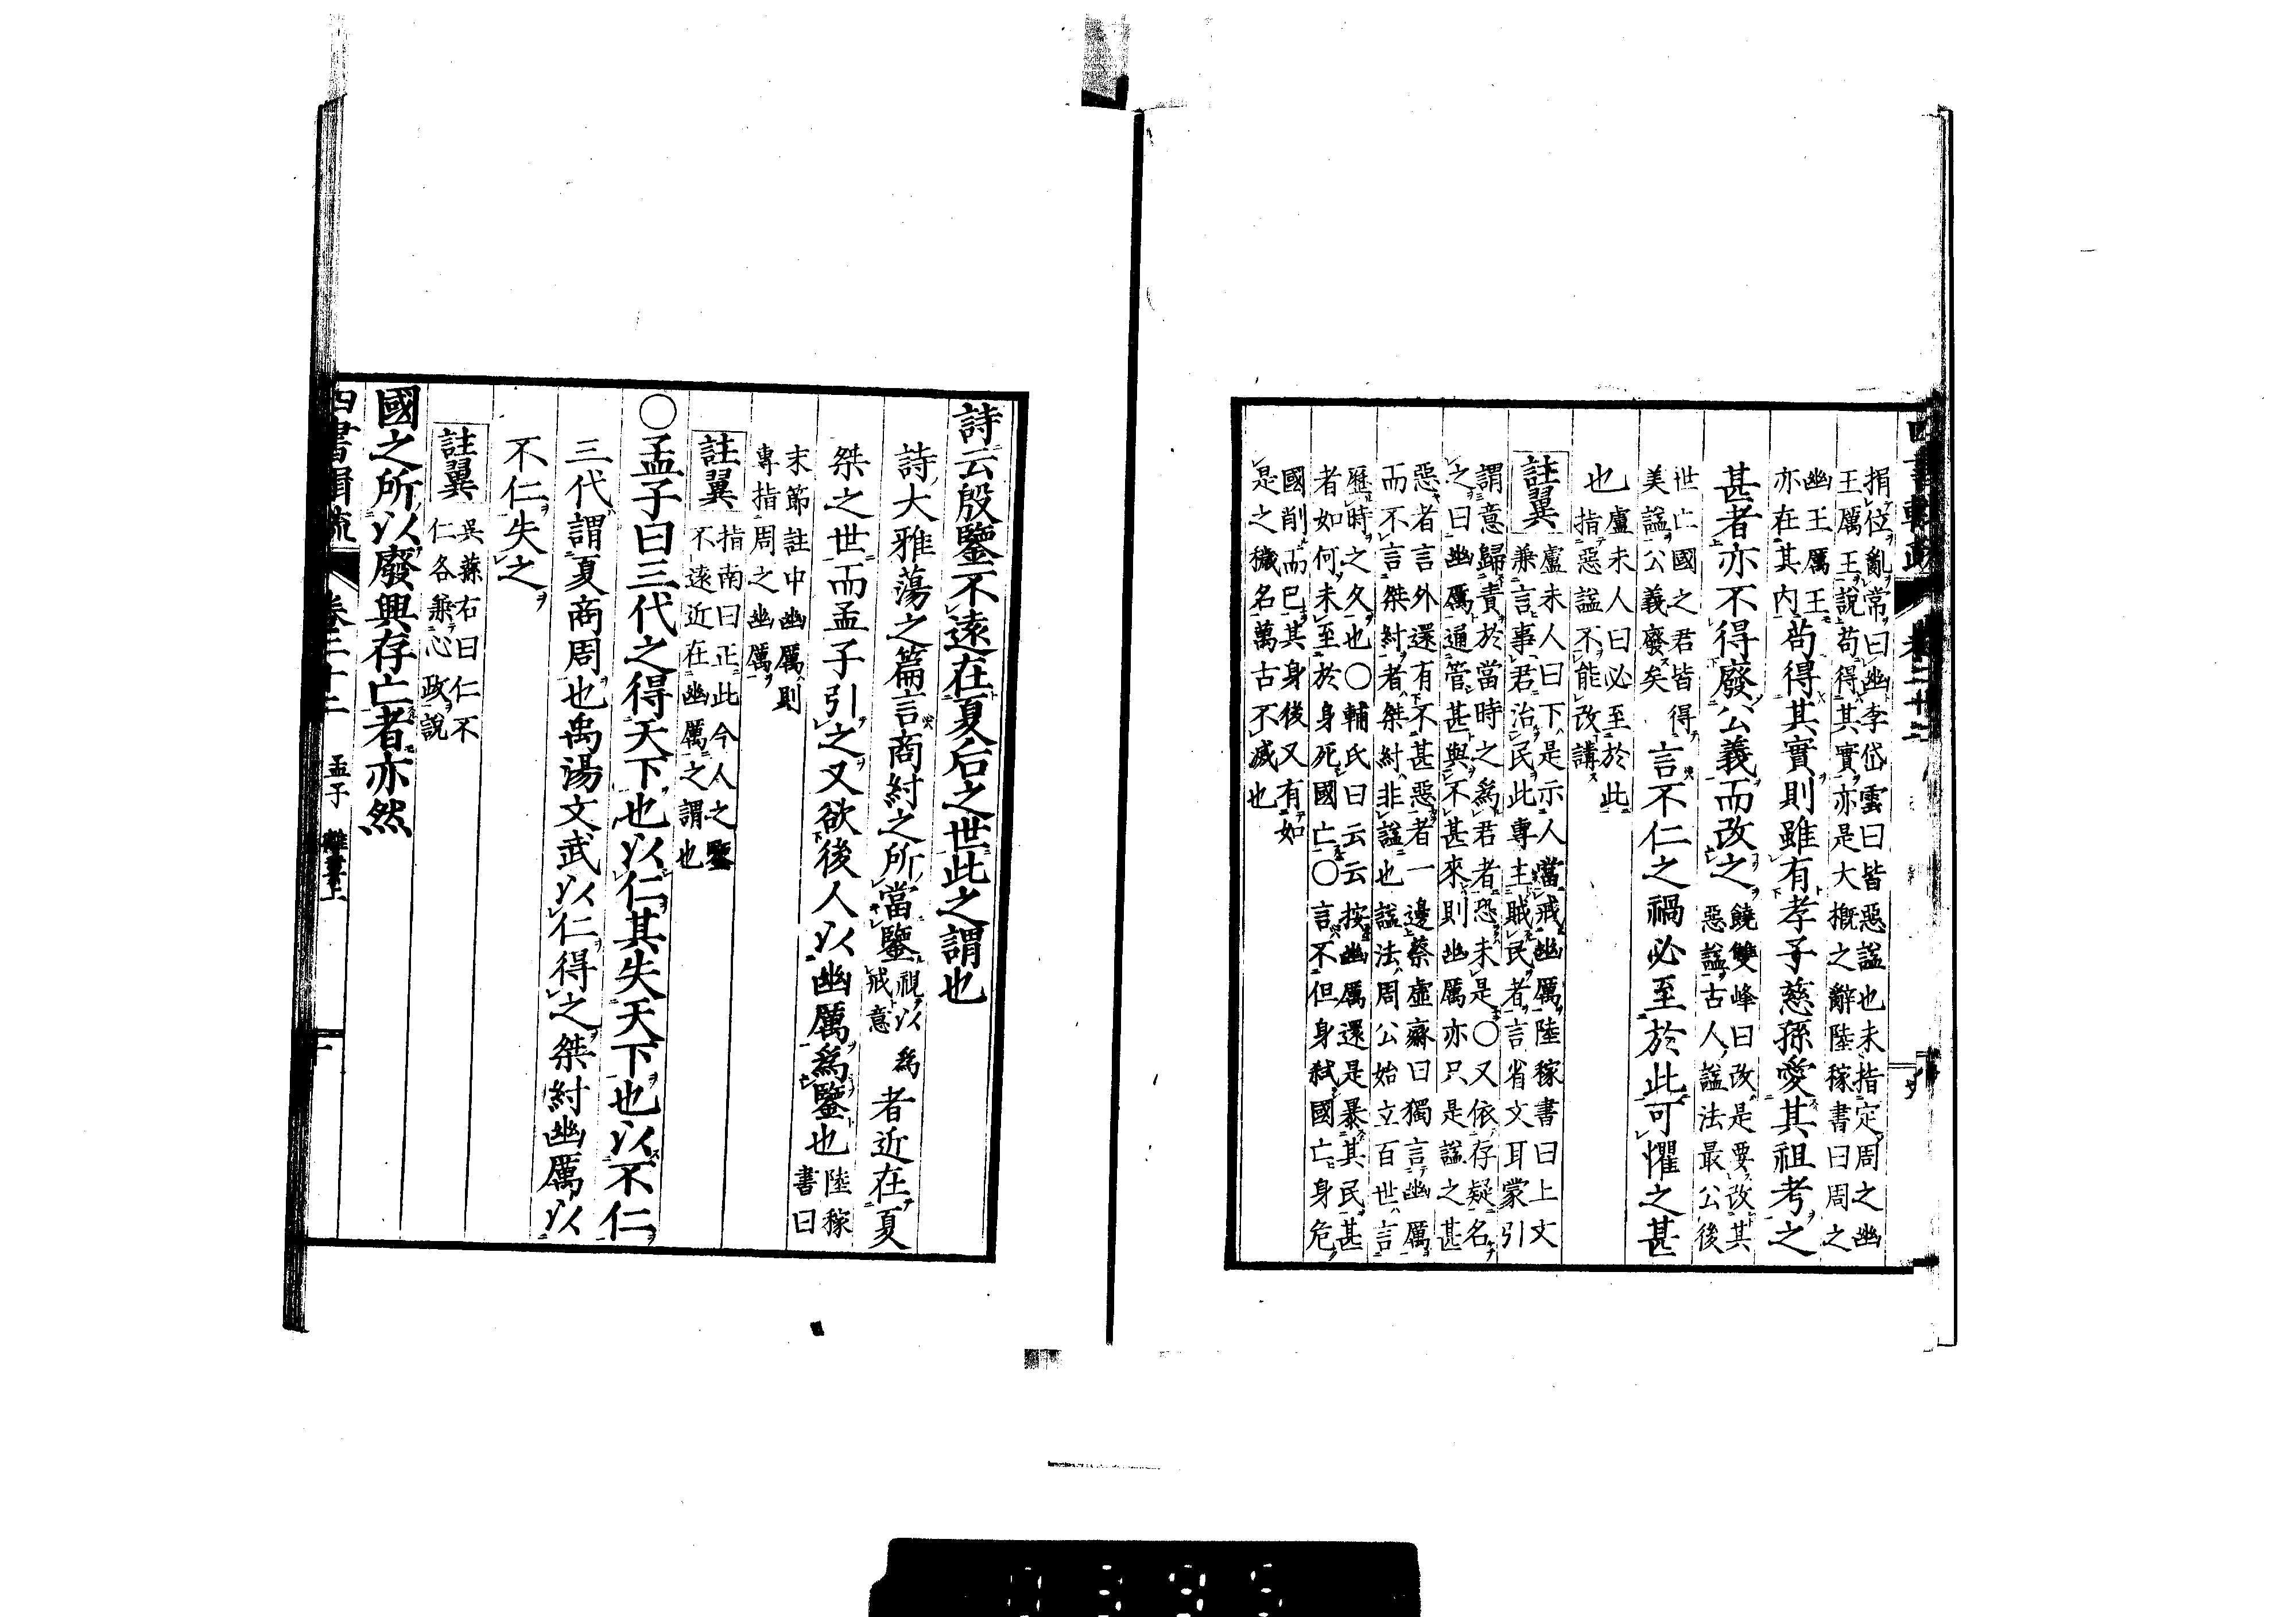 四書輯疏 卷二十二
損位亂常曰幽李岱雲曰皆惡諡也未指定周之幽
王厲王說苟得其實亦是大槪之辭陸稼書曰周之
幽王厲王
亦在其內 苟得其實則雖有孝子慈孫愛其祖考之
甚者亦不得廢公義而改之 饒雙峰曰改是要改其
惡諡古人諡法最公後
世亡國之君皆得
美諡公義廢矣 言不仁之禍必至於此可懼之甚
也 盧未人曰必至於此
指惡諡不能改講
註翼 盧未人曰下是示人當戒幽厲陸稼書曰上文
兼言事君治民此專主賊民者言省文耳蒙引
謂意歸責於當時之爲君者恐未是○又依存疑名
之曰幽厲通管甚與不甚來則幽厲亦只是諡之甚
惡者言外還有不甚惡者一邊蔡虛齋曰獨言幽厲
而不言桀紂者桀紂非諡也諡法周公始立百世言
歷時之久也○輔氏曰云云按幽厲還是暴其民甚
者如何未至於身死國亡○言不但身弒國亡身危
國削而已其身後又有如
是之穢名萬古不滅也
詩云殷鑒不遠在夏后之世此之謂也
詩大雅蕩之篇言商紂之所當鑒 視以爲
戒意 者近在夏
桀之世而孟子引之又欲後人以幽厲爲鑒也 陸稼
書曰
末節註中幽厲則
專指周之幽厲
註翼 指南曰正此今人之鑒
不遠近在幽厲之謂也
○孟子曰三代之得天下也以仁其失天下也以不仁
三代謂夏商周也禹湯文武以仁得之桀紂幽厲以
不仁失之
註翼 吳蓀右曰仁不
仁各兼心政說
國之所以廢興存亡者亦然
四書輯疏 卷二十二 孟子 離婁上